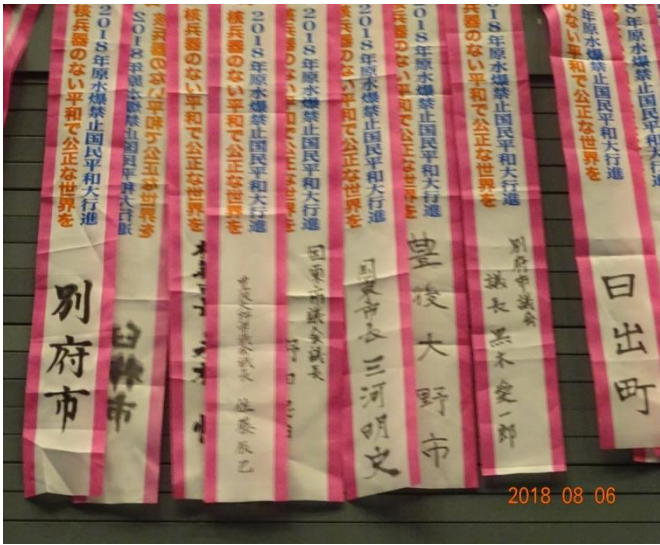 2018年原水爆禁止国民平和大行進
核兵器のない平和で公正な世界を
別府市
2018年原水爆禁止国民平和大行進
核兵器のない平和で公正な世界を
臼杵市
核兵器のない平和で公正な世界を
2018年原水爆禁止国民平和大行進
核兵器のない平和で公正な世界を
議長 佐藤辰己
2018年原水爆禁止国民平和大行進
核兵器のない平和で公正な世界を
国東市議会議長
2018年原水爆禁止国民平和大行進
核兵器のない平和で公正な世界を
国東市長 三河明史
2018年原水爆禁止国民平和大行進
核兵器のない平和で公正な世界を
豊後大野市
2018年原水爆禁止国民平和大行進
核兵器のない平和で公正な世界を
別府市議会
議長 黒木愛一郎
2018年原水爆禁止国民平和大行進
核兵器のない平和で公正な世界を
日出町
2018 08 06